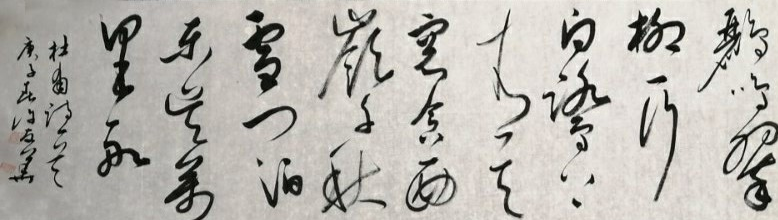 鹂鸣翠
柳一行
白鹭上
青天
窗含西
嶺千秋
雪门泊
东吴萬
里船
杜甫诗一首
庚子春